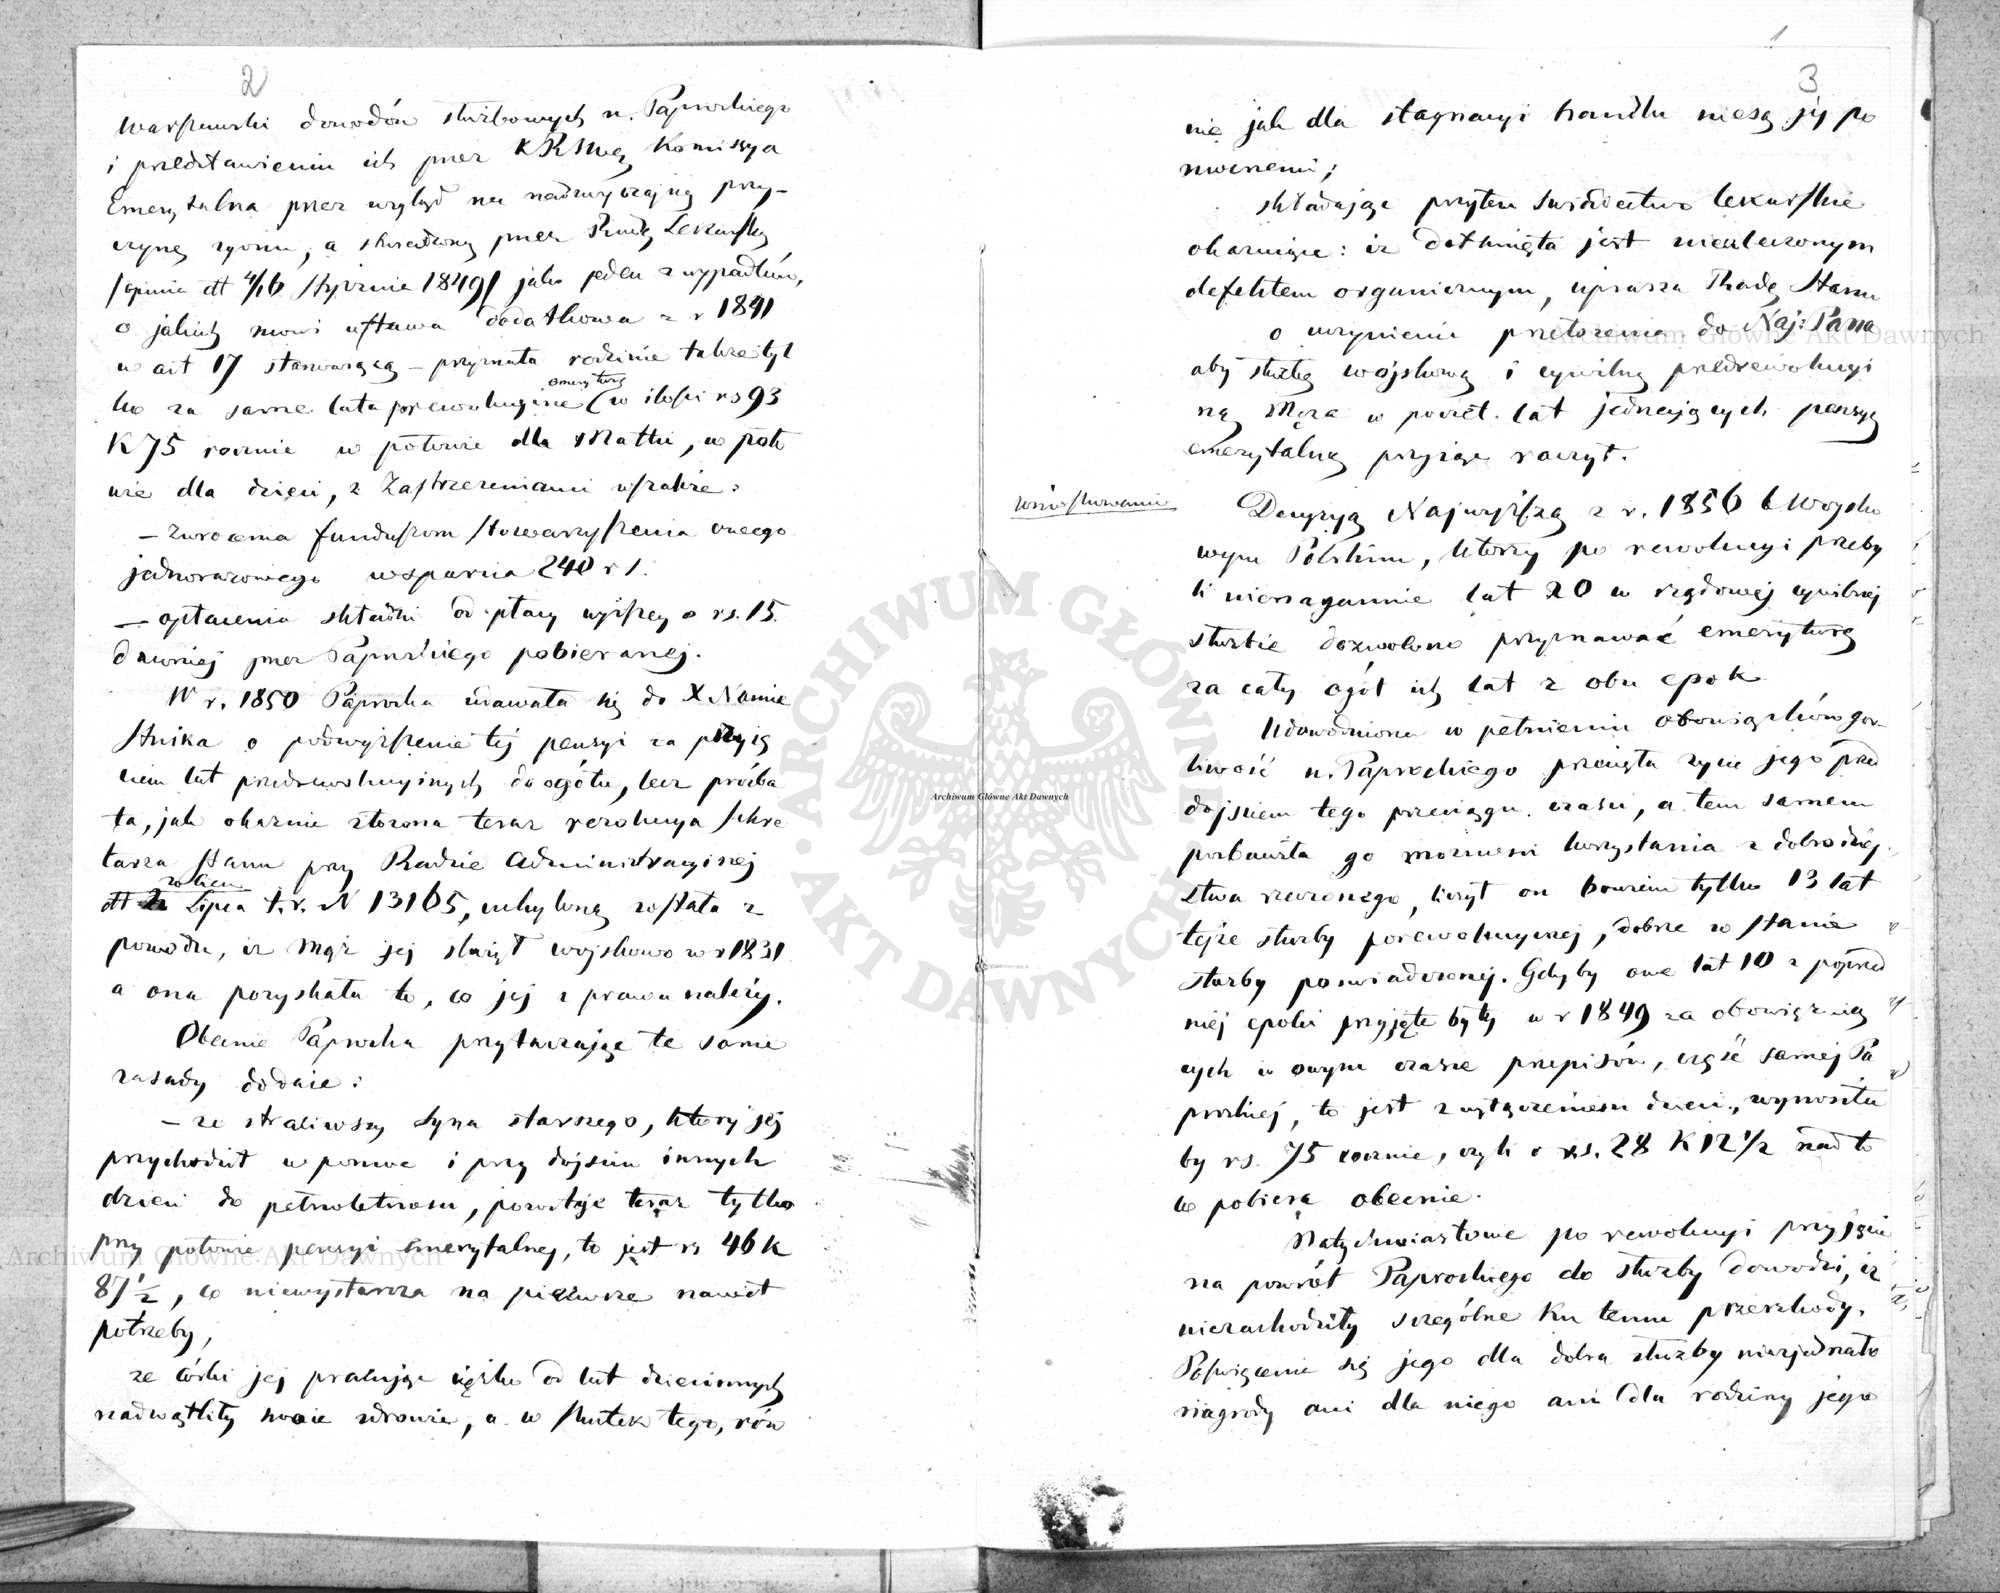 2
Warszawski dowodów służbowych n. Paprockiego
i przedstawieniu ich przez KRSWeg Komissya
Emerytalna przez wzgląd na nadzwyczajną przy-
czynę zgonu, a stwierdzoną przez Radę Lekarską
/opinia dtt 4/16 Stycznia 1849/ jako jeden z wypadków,
o jakich mowi ustawa dodatkowa z r 1841
w art 17 stanowiącą – przyznała rodzinie także tyl
ko za same lata porewolucyjne (emeryturę w ilości rs 93
K 75 rocznie w połowie dla Matki, w poło
wie dla dzieci, z Zastrzeżeniami wszakże:
– zwrócenia funduszom Stowarzyszenia onego
jednorazowego wsparcia 240 rs.
– opłacenia składki od płacy wyższey o rs. 15.
dawniej przez Paprockiego pobieranej.
W r. 1850 Paprocka udawała się do X Namie
stnika o podwyższenie tej pensyi za przyię
ciem lat przedrewolucyjnych do ogółu, lecz prośba
ta, jak okazuie złożona teraz rezolucya Sekre
tarza Stanu przy Radzie Administracyinej
dtt Lipca t. r. N 13165, uchyloną została z
powodu, iż Mąż jej służył wojskowo w r 1831
a ona pozyskała to, co jej z prawa należy.
Obecnie Paprocka przytaczając te same
zasady dodaie:
– że straciwszy Syna starszego, który jej
przychodził w pomoc i przy dojściu innych
dzieci do pełnoletności, pozostaje teraz tylko
przy połowie pensyi emerytalnej, to jest rs 46 k
87 1/2, co niewystarcza na pierwsze nawet
potrzeby,
że córki jej pracując ciężko od lat dziecinnych
nadwątliły swoie zdrowie, a w skutek tego, rów
1
3
nie jak dla stagnacyi handlu niesą jej po
mocnemi;
składając przytem świadectwo lekarskie
okazujące: iż dotknięta jest nieuleczonym
defektem organicznym, uprasza Radę Stanu
o uczynienie przełożenia do Naj: Pana
aby służbę wojskową i cywilną przedrewolucyi
ną Męża w poczet lat jednających pensyę
emerytalną przyjąć raczył.
Wnioskowanie
Decyzyą Najwyższą z r. 1856 b Wojsko
wym Polskim, którzy po rewolucyi przeby
li nienagannie lat 20 w rządowej cywilnej
służbie dozwolono przyznawać emeryturę
za cały ogół ich lat z obu epok
Udowodniona w pełnieniu obowiązków gor-
liwość n. Paprockiego przecięła życie jego przed
dojściem tego przeciągu czasu, a tem samem
pozbawiła go możności korzystania z dobrodziej
stwa rzeczonego, liczył on bowiem tylko 13 lat
tejże służby porewolucyinej, dobrze w stanie
służby poświadczonej. Gdyby one lat 10 z poprzed
niej epoki przyjęte były w r 1849 za obowiązuią
cych w owym czasie przepisów, część samej Pa
prockiej, to jest z wyłączeniem dzieci, wynosiła
by rs. 75 rocznie, czyli o rs. 28 K 12 1/2 nad to
co pobiera obecnie.
Natychmiastowe po rewolucyi przyjęcie
na powrót Paprockiego do służby dowodzi, iż
niezachodziły szczególne ku temu przeszkody.
Poświęcenie się jego dla dobra służby niezjednało
nagrody ani dla niego ani dla rodziny jego
Archiwum Główne Akt Dawnych
Archiwum Główne Akt Dawnych
Archiwum Główne Akt Dawnych
ARCHIWUM GŁÓWNE AKT DAWNYCH